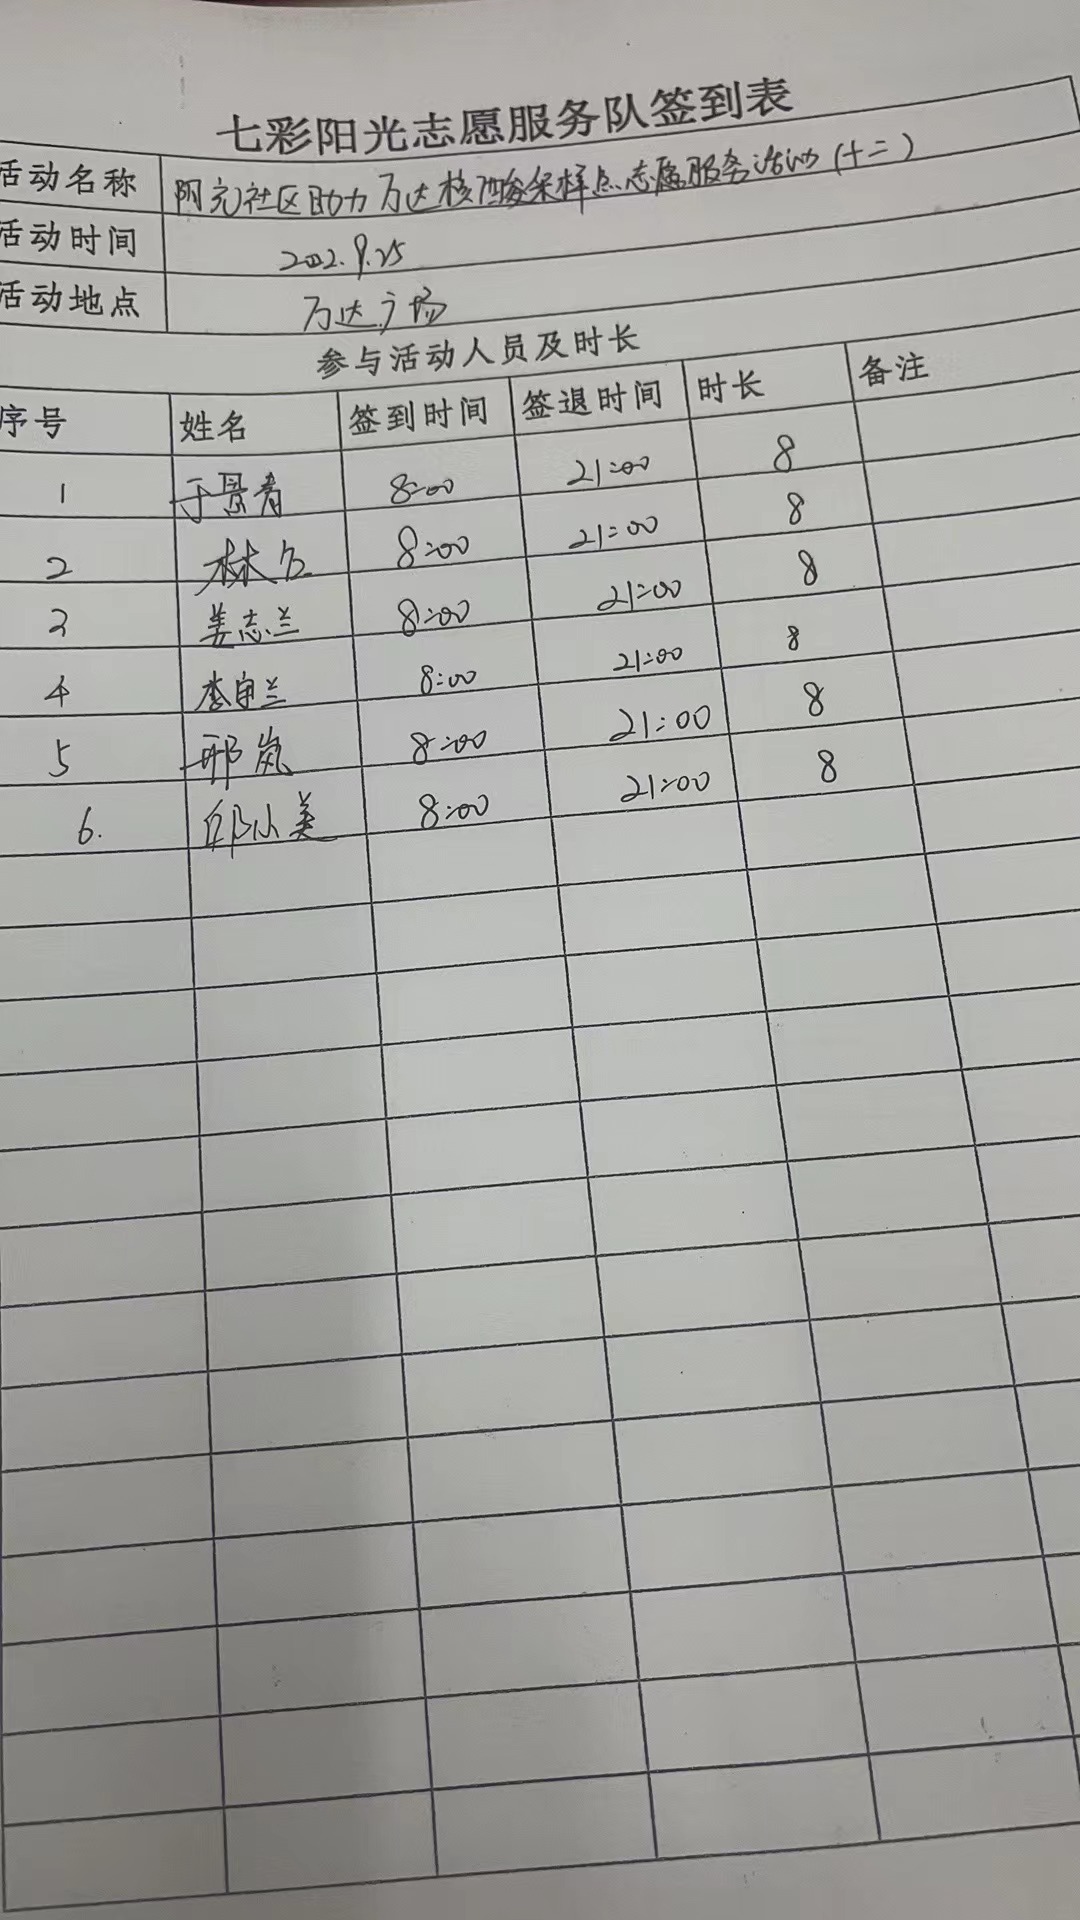 七彩阳光志愿服务队签到表
活动名称 社区助力万达核酸采样点志愿服务活动(十二)
活动时间 2022.9.25
活动地点 万达广场
参与活动人员及时长
序号 姓名 签到时间 签退时间 时长 备注
1 于景春 8:00 21:00 8
2 林 8:00 21:00 8
3 姜志兰 8:00 21:00 8
4 李 兰 8:00 21:00 8
5 邢岚 8:00 21:00 8
6. 邱小美 8:00 21:00 8